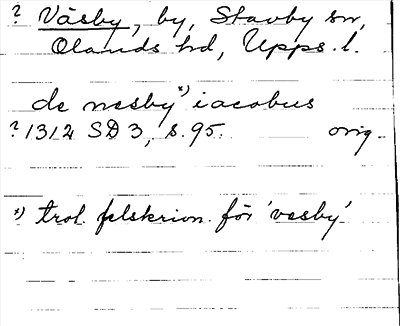 ? Väsby, by, Stavby sn,
Olands hd, Upps. l.
de nesby *) iacobus
? 1312 SD 3, s. 95. orig.
*) trol. felskrivn. för 'vesby'